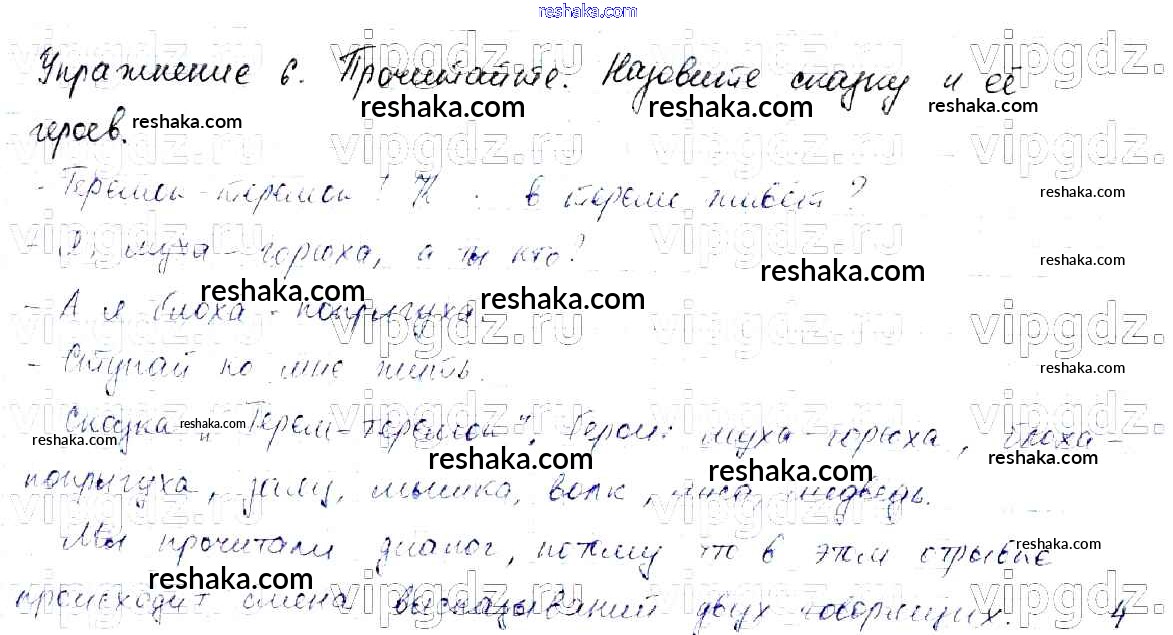 reshaka.com
Упражнение 6. Прочитайте. Назовите сказку и её
героев.
- Теремок-теремок! К в тереме живёт?
- Я, муха-горюха, а ты кто?
- А я блоха-попрыгуха.
- Ступай ко мне жить.
Сказка "Терем-теремок". Герои: муха-горюха, блоха-
попрыгуха, заяц, мышка, волк, лиса, медведь.
Мы прочитали диалог, потому что в этом отрывке
происходит смена высказываний двух говорящих. 4